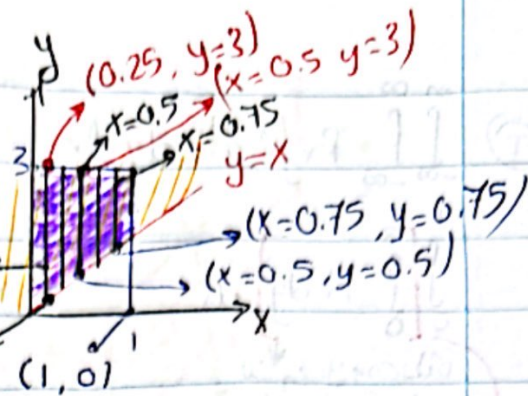 y
(0.25, y=3)
(x=0.5 y=3)
x=0.5
x=0.75
3
y=x
(x=0.75, y=0.75)
(x=0.5, y=0.5)
x
1
(1,0)